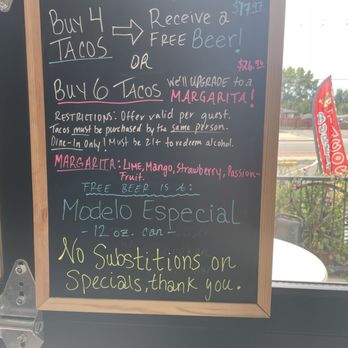 Buy 4 Receive a $17.99
TACOS FREE Beer!
OR $26.94
Buy 6 TACOS we'll UPGRADE to a
MARGARITA!
RESTRICTIONS: Offer valid per guest.
Tacos must be purchased by the same person.
Dine-In Only! Must be 21+ to redeem alcohol.
MARGARITA: LIME, Mango, Strawberry, Passion-
Fruit.
FREE BEER is a:
Modelo Especial
- 12 oz. can -
No Substitions on
Specials, thank you.